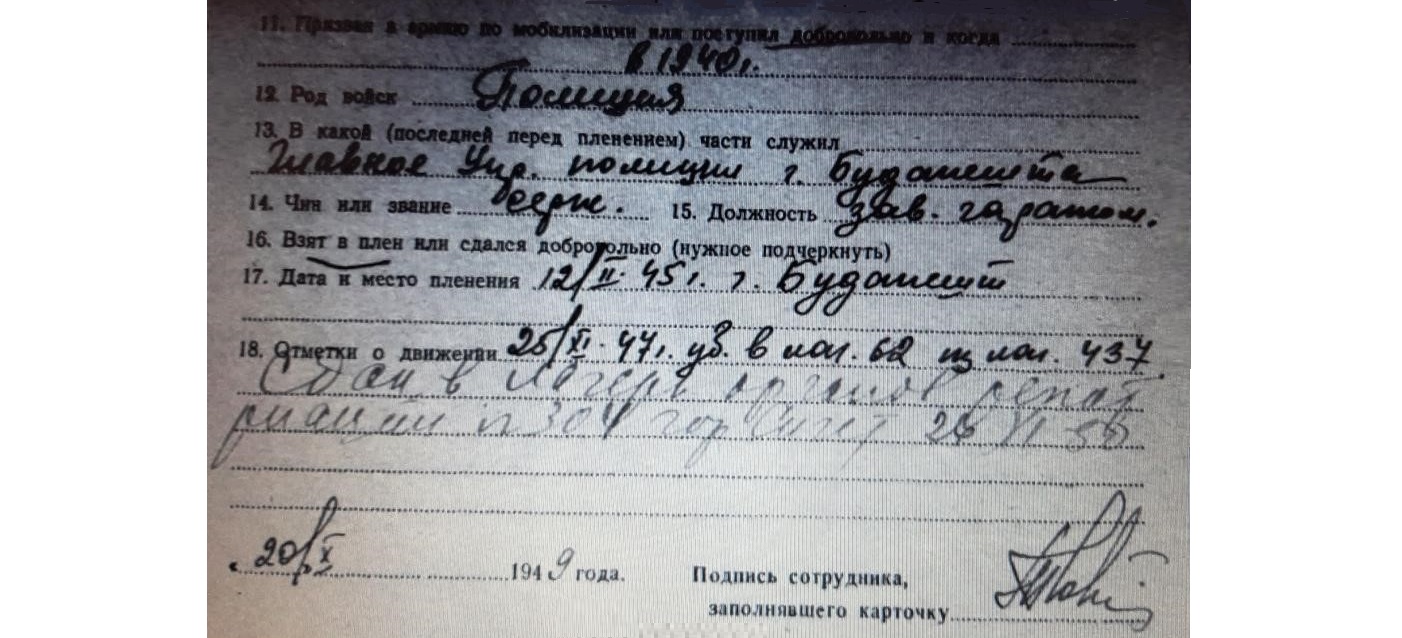 11. Призван в армию по мобилизации или поступил добровольно и когда
в 1940г.
12. Род войск Полиция
13. В какой (последней перед пленением) части служил
Главное Упр. полиции г. Будапешта
14. Чин или звание серж. 15. Должность зав. гаражом.
16. Взят в плен или сдался добровольно (нужное подчеркнуть)
17. Дата и место пленения 12/II. 45г. г. Будапешт
18. Отметки о движении 25/XI. 47г. уб. в лаг. 62 из лаг. 437.
Сдан в лагерь органов репат
риации № 304 гор Сигет 26
20/X 1949 года. Подпись сотрудника,
заполнявшего карточку